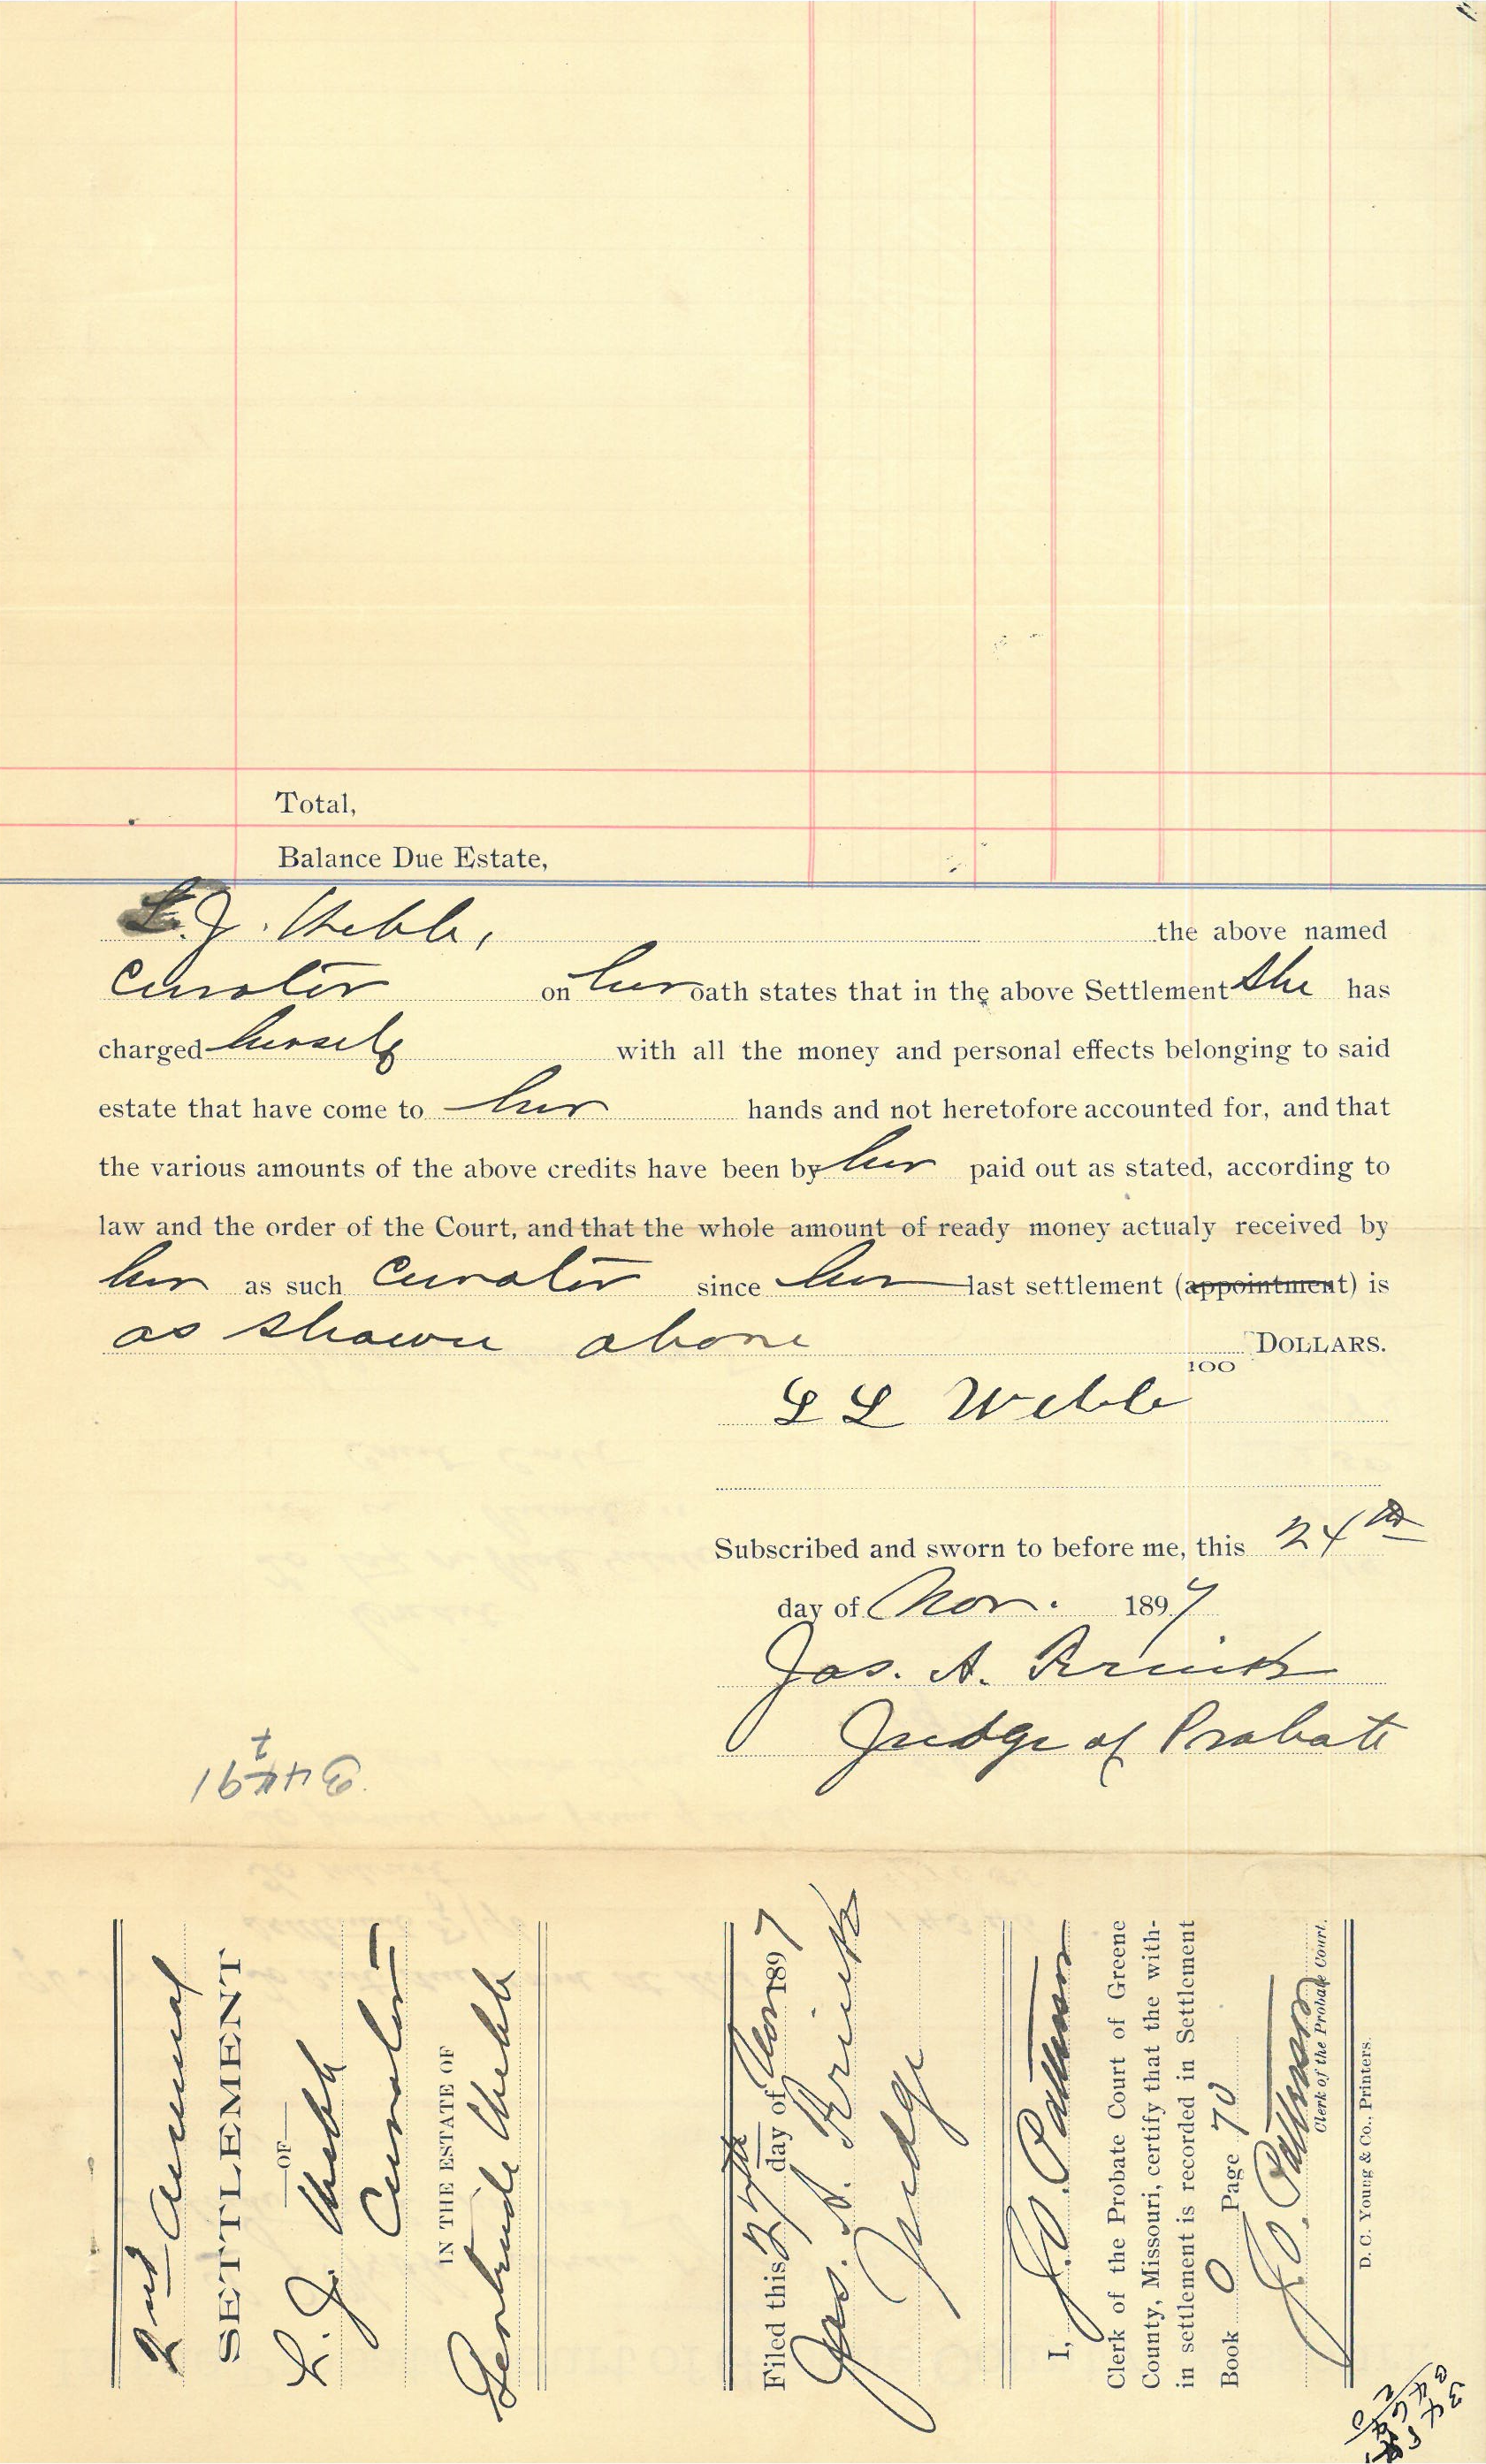 Total,
Balance Due Estate,
L. J. Webb, the above named
Curator on her oath states that in the above Settlement She has
charged herself with all the money and personal effects belonging to said
estate that have come to her hands and not heretofore accounted for, and that
the various amounts of the above credits have been by her paid out as stated, according to
law and the order of the Court, and that the whole amount of ready money actualy received by
her as such Curator since her last settlement (appointment) is
as shown above DOLLARS.
100
L L Webb
Subscribed and sworn to before me, this 24th
day of Nov. 1897
Jas. A. Frink
Judge of Probate
2nd Annual
SETTLEMENT
OF
L. J. Webb
Curator
IN THE ESTATE OF
Gertrude Webb
Filed this 24th day of Nov 1897
Jas. A. Frink
Judge
I, J. O. Patterson
Clerk of the Probate Court of Greene
County, Missouri, certify that the with-
in settlement is recorded in Settlement
Book O Page 70
J. O. Patterson
Clerk of the Probate Court.
D. C. Young & Co., Printers.